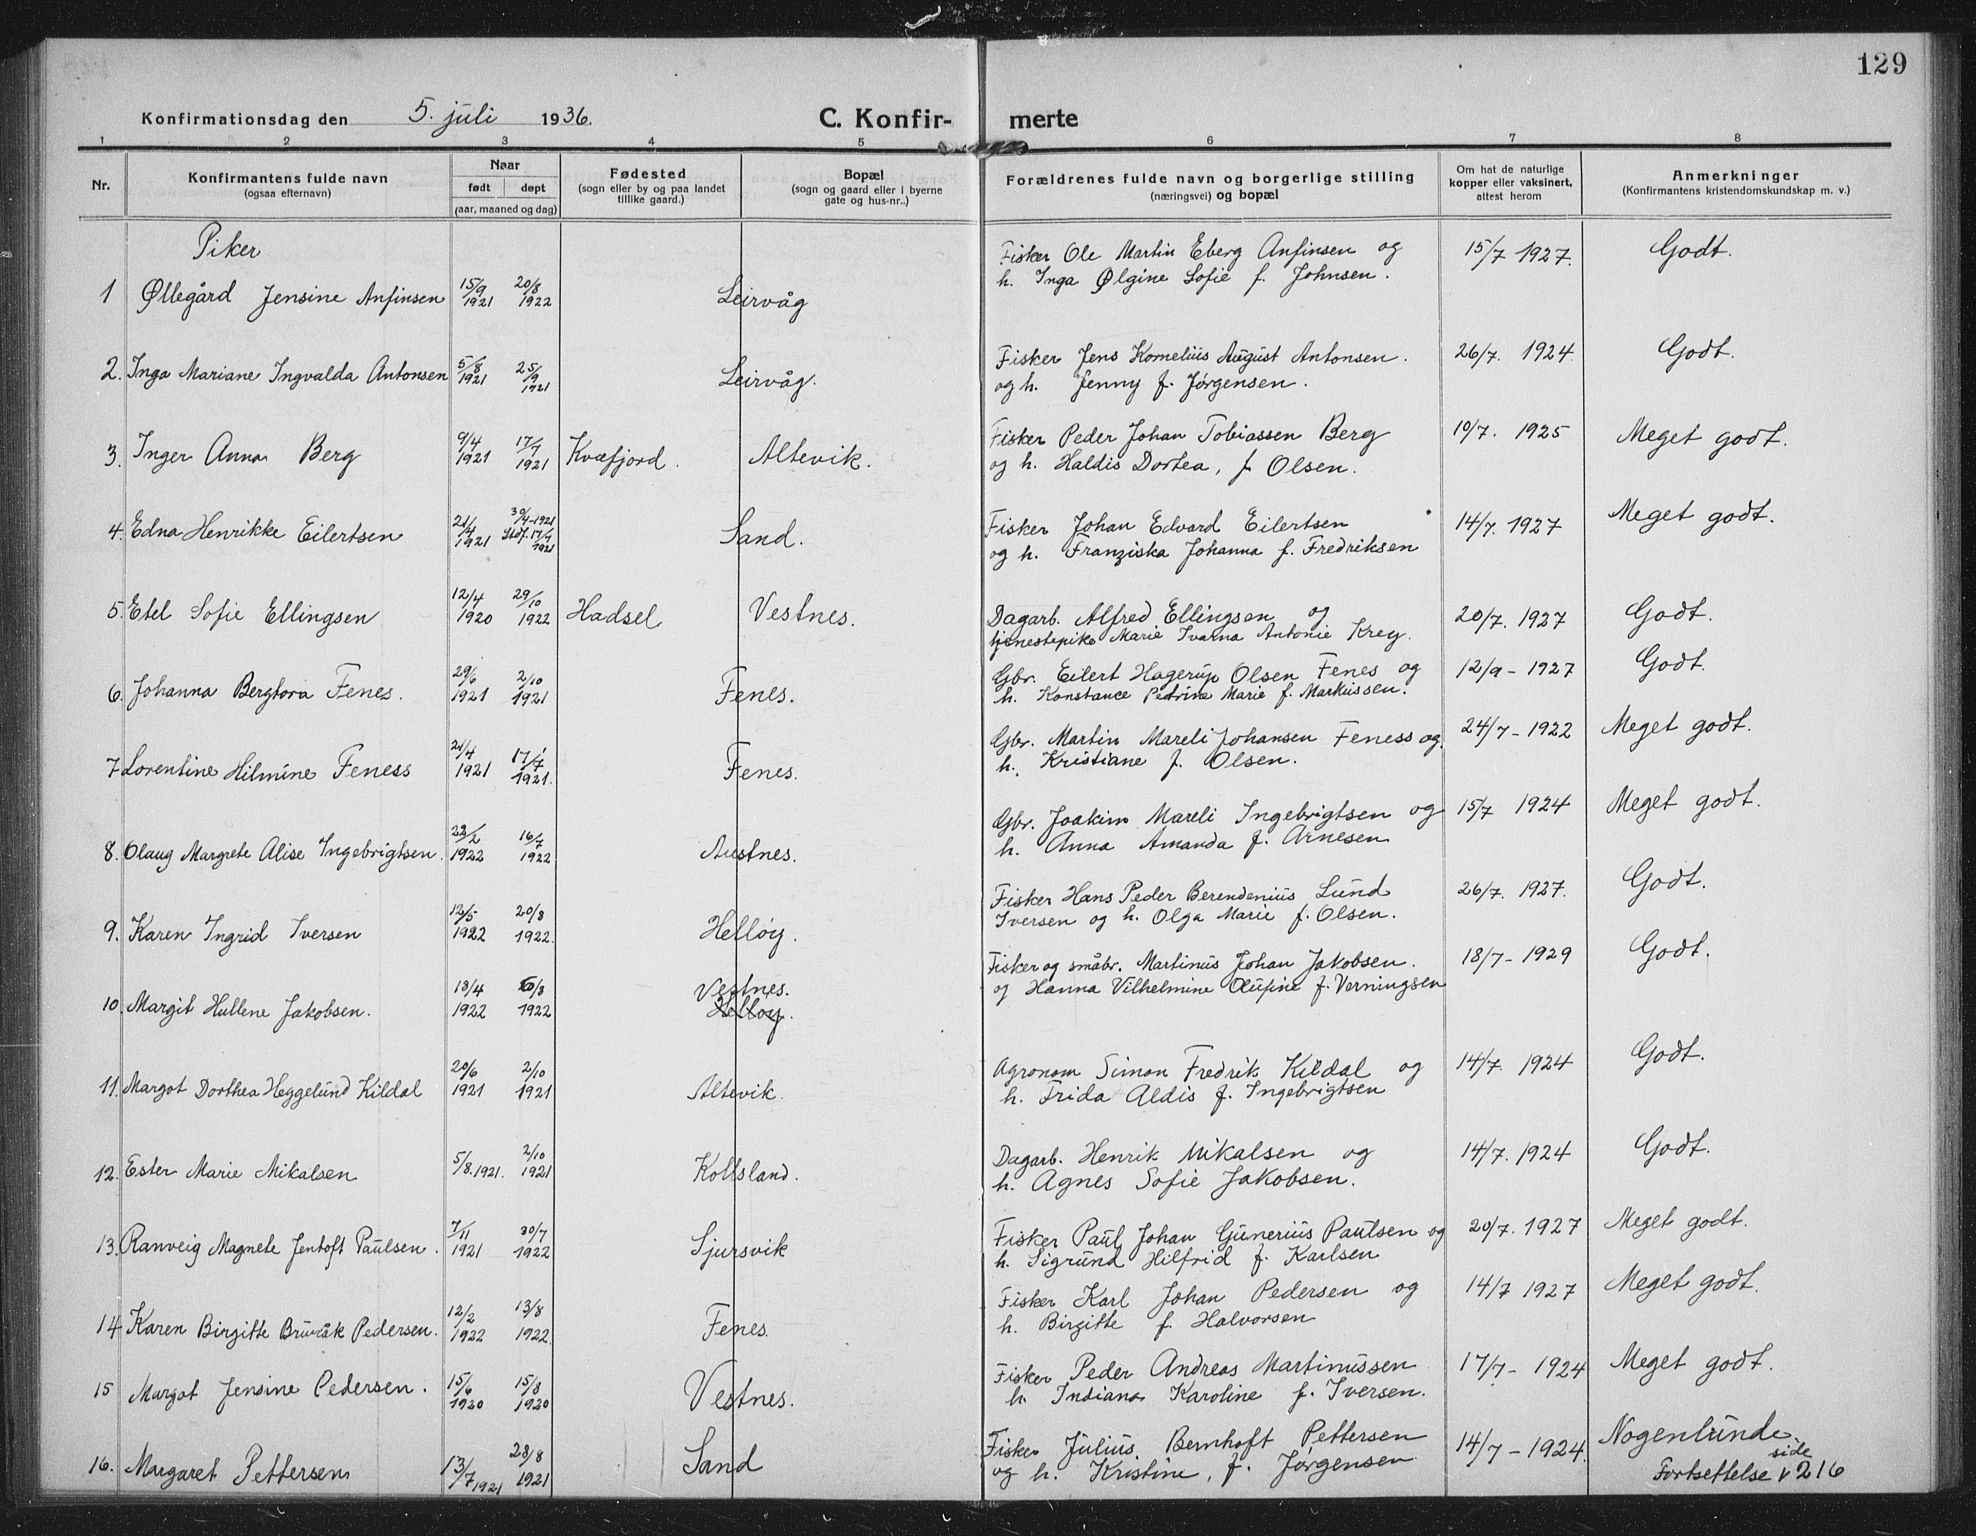 129
Konfirmationsdag den 5. juli 1936. C. Konfir- merte
1 2 3 4 5 6 7 8
Nr. Konfirmantens fulde navn (ogsaa efternavn) Naar født døpt (aar, maaned og dag) Fødested (sogn eller by og paa landet tillike gaard.) Bopæl (sogn og gaard eller i byerne gate og hus-nr..) Forældrenes fulde navn og borgerlige stilling (næringsvei) og bopæl Om hat de naturlige kopper eller vaksinert, attest herom Anmerkninger (Konfirmantens kristendomskundskap m. v.)
Piker
1 Øllegård Jensine Anfinsen 15/9 1921 20/8 1922 Leirvåg Fisker Ole Martin Eberg Anfinsen og 15/7 1927. Godt.
h. Inga Ølgine Sofie f. Johnsen.
2. Inga Mariane Ingvalda Antonsen 5/8 1921 25/9 1921 Leirvåg. Fisker Jens Kornelius August Antonsen. 26/7. 1924. Godt.
og h. Jenny f. Jørgensen.
3. Inger Anna Berg 9/4 1921 17/7 1921 Kvæfjord. Altevik. Fisker Peder Johan Tobiassen Berg 10/7. 1925 Meget godt.
og h. Haldis Dortea, f. Olsen.
4. Edna Henrikke Eilertsen 21/4 1921 30/4-1921 Stdf. 17/7 1921 Sand. Fisker Johan Edvard Eilertsen 14/7. 1927 Meget godt.
og h. Franziska Johanna f. Fredriksen
5. Etel Sofie Ellingsen 12/4 1920 29/10 1922 Hadsel Vestnes. Dagarb. Alfred Ellingsen og 20/7. 1927 Godt.
tjenestepike Marie Ivarna Antonie Krey.
6. Johanna Bergtora Fenes. 29/6 1921 2/10 1921 Fenes. Gbr. Eilert Hagerup Olsen Fenes og 12/9 - 1927 Godt.
h. Konstance Petrine Marie f. Markussen.
7 Lorentine Hilmine Feness 21/4 1921 17/7 1921. Fenes. Gbr. Martin Mareli Johansen Feness og 24/7 - 1922 Meget godt.
h. Kristiane f. Olsen.
8. Olaug Margrete Alise Ingebrigtsen. 22/2 1922 16/7 1922 Austnes. Gbr. Joakim Mareli Ingebrigtsen og 15/7 1924 Meget godt.
h. Anna Amanda f. Arnesen
9. Karen Ingrid Iversen 12/5 1922 20/8 1922. Helløy. Fisker Hans Peder Berendenius Lund 26/7. 1927. Godt.
Iversen og h. Olga Marie f. Olsen.
10. Margit Hullene Jakobsen. 18/4 1922 6/8 1922 Vestnes. Helløy. Fisker og småbr. Martinus Johan Jakobsen. 18/7 - 1929 Godt.
og Hanna Vilhelmine Olufine f. Verningsen
11. Margot Dorthea Heggelund Kildal 20/6 1921 2/10 1921 Altevik. Agronom Simon Fredrik Kildal og 14/7. 1924 Godt.
h. Frida Aldis f. Ingebrigtsen
12. Ester Marie Mikalsen 5/8. 1921. 2/10 1921 Kollsland. Dagarb. Henrik Mikalsen og 14/7. 1924 Godt.
h. Agnes Sofie Jakobsen.
13. Ranveig Magnete Jentoft Paulsen. 7/11 1921 30/7 1922 Sjursvik Fisker Paul Johan Gunerius Paulsen og 20/7. 1927 Meget godt.
h. Sigrund Hilfrid f. Karlsen
14 Karen Birgitte Pedersen. 12/2 1922 13/8 1922. Fenes. Fisker Karl Johan Pedersen og 14/7 1927 Meget godt.
h. Birgitte f. Halvorsen
15 Margot Jensine Pedersen. 15/6 1920 15/8 1920 Vestnes. Fisker Peder Andreas Martinussen 17/7 - 1924 Meget godt.
h. Indiana Karoline f. Iversen.
16. Margaret Pettersen 13/7 1921 28/8 1921 Sand Fisker Julius Bernhoft Pettersen 14/7 - 1924. Nogenlunde
og h. Kristine, f. Jørgensen Fortsettelse side 216